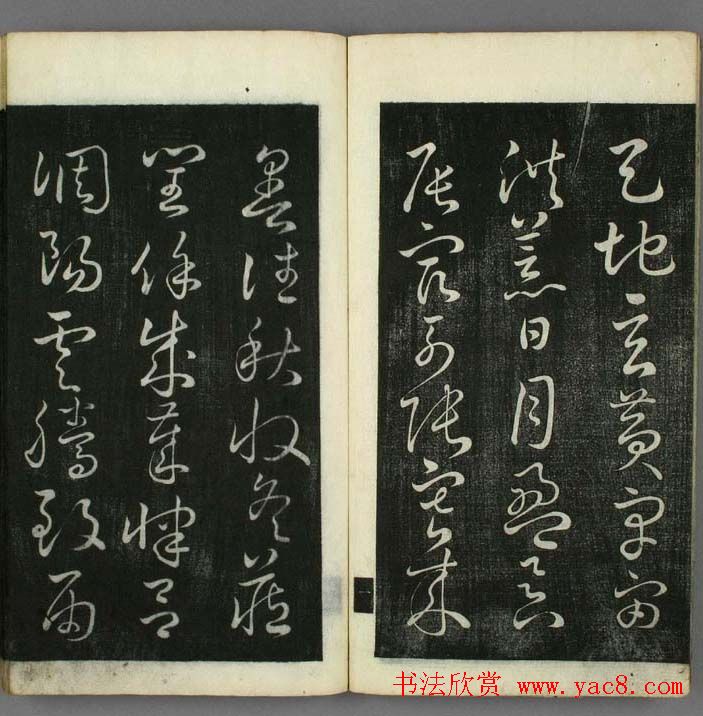 天地玄黄宇宙
洪荒日月盈昃
辰宿列張寒來
暑往秋收冬藏
閏餘成歲律呂
調陽雲騰致雨
书法欣赏 www.yac8.com